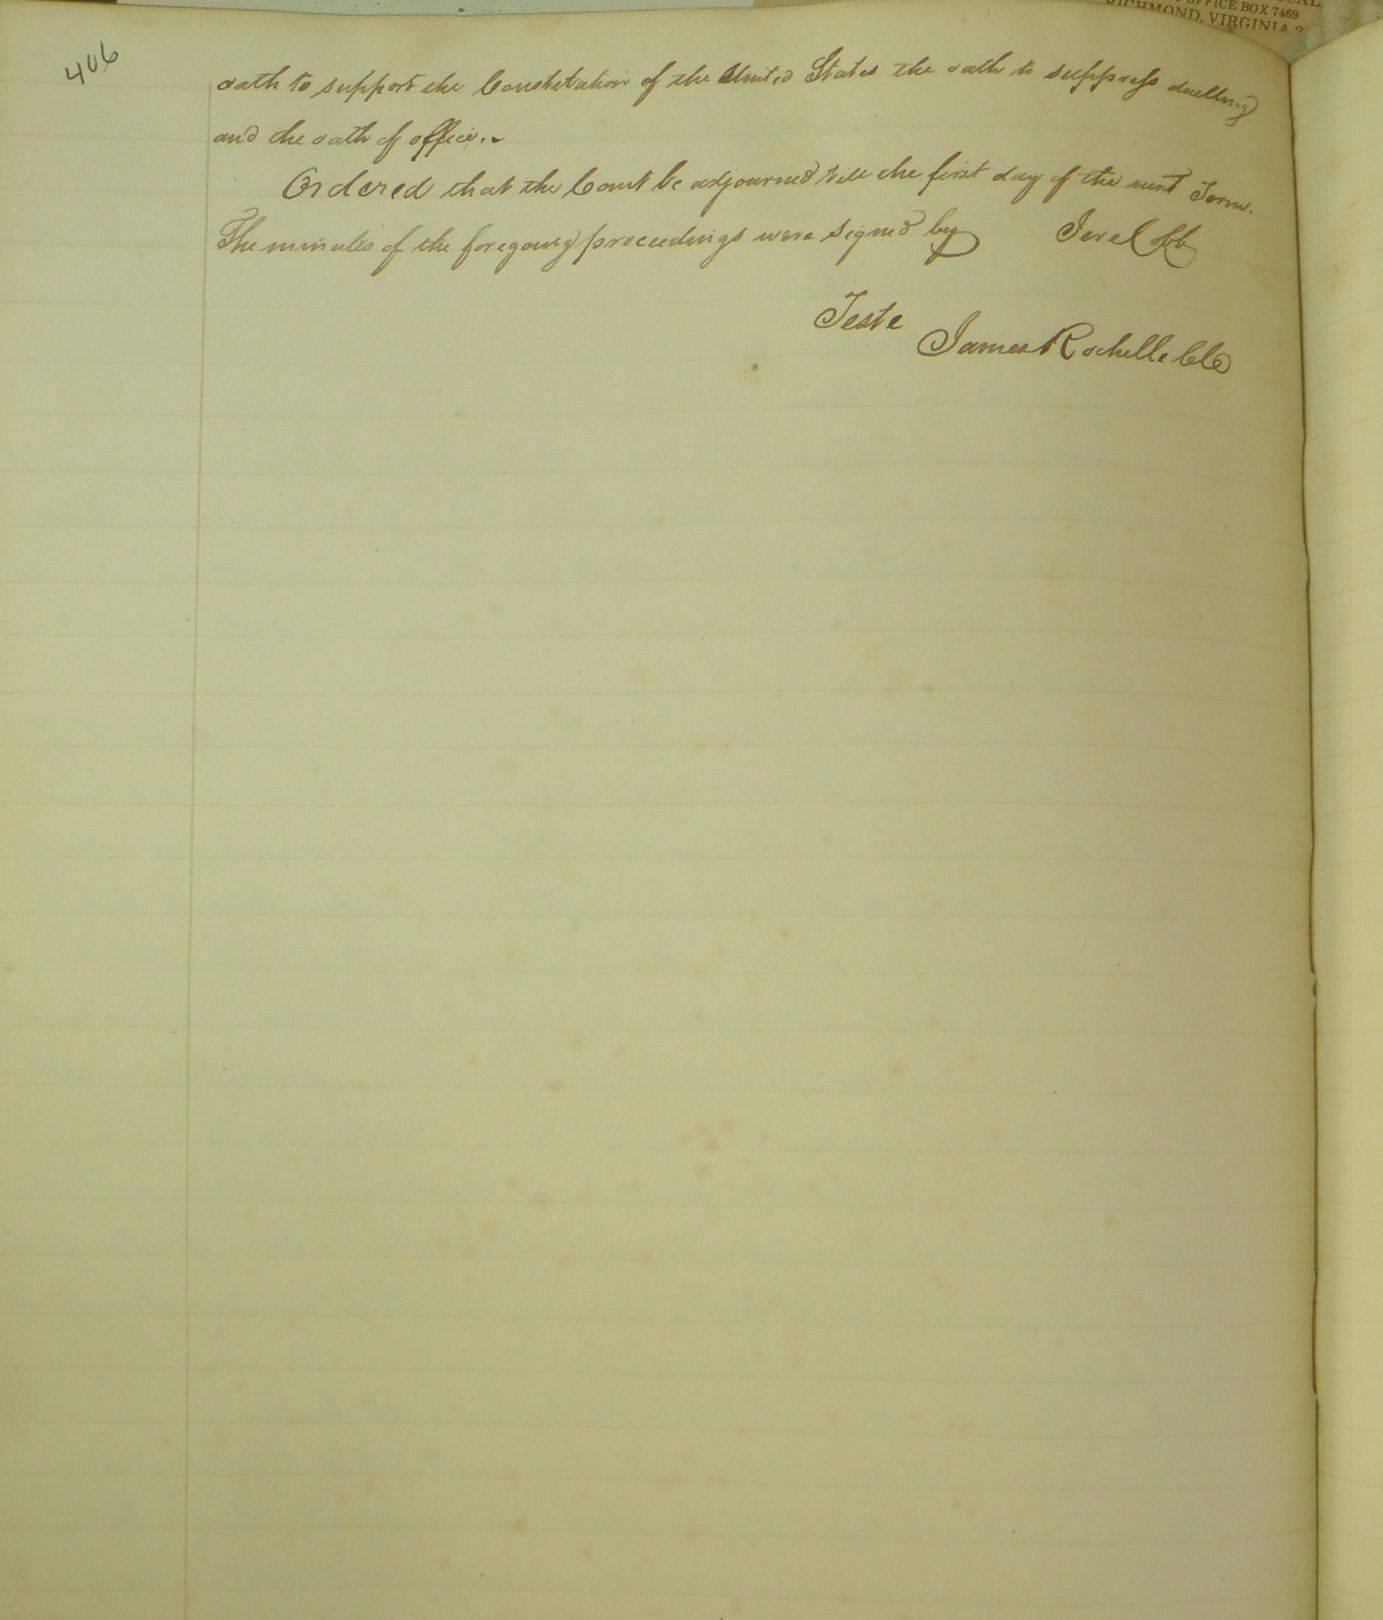 OFFICE BOX 7469
RICHMOND, VIRGINIA 2
406
oath to support the Constitution of the United States the oath to suppress duelling
and the oath of office.
Ordered that the Court be adjourned till the first day of the next Term.
The minutes of the foregoing proceedings were signed by Jere Cobb
Teste
James Rochelle Clk